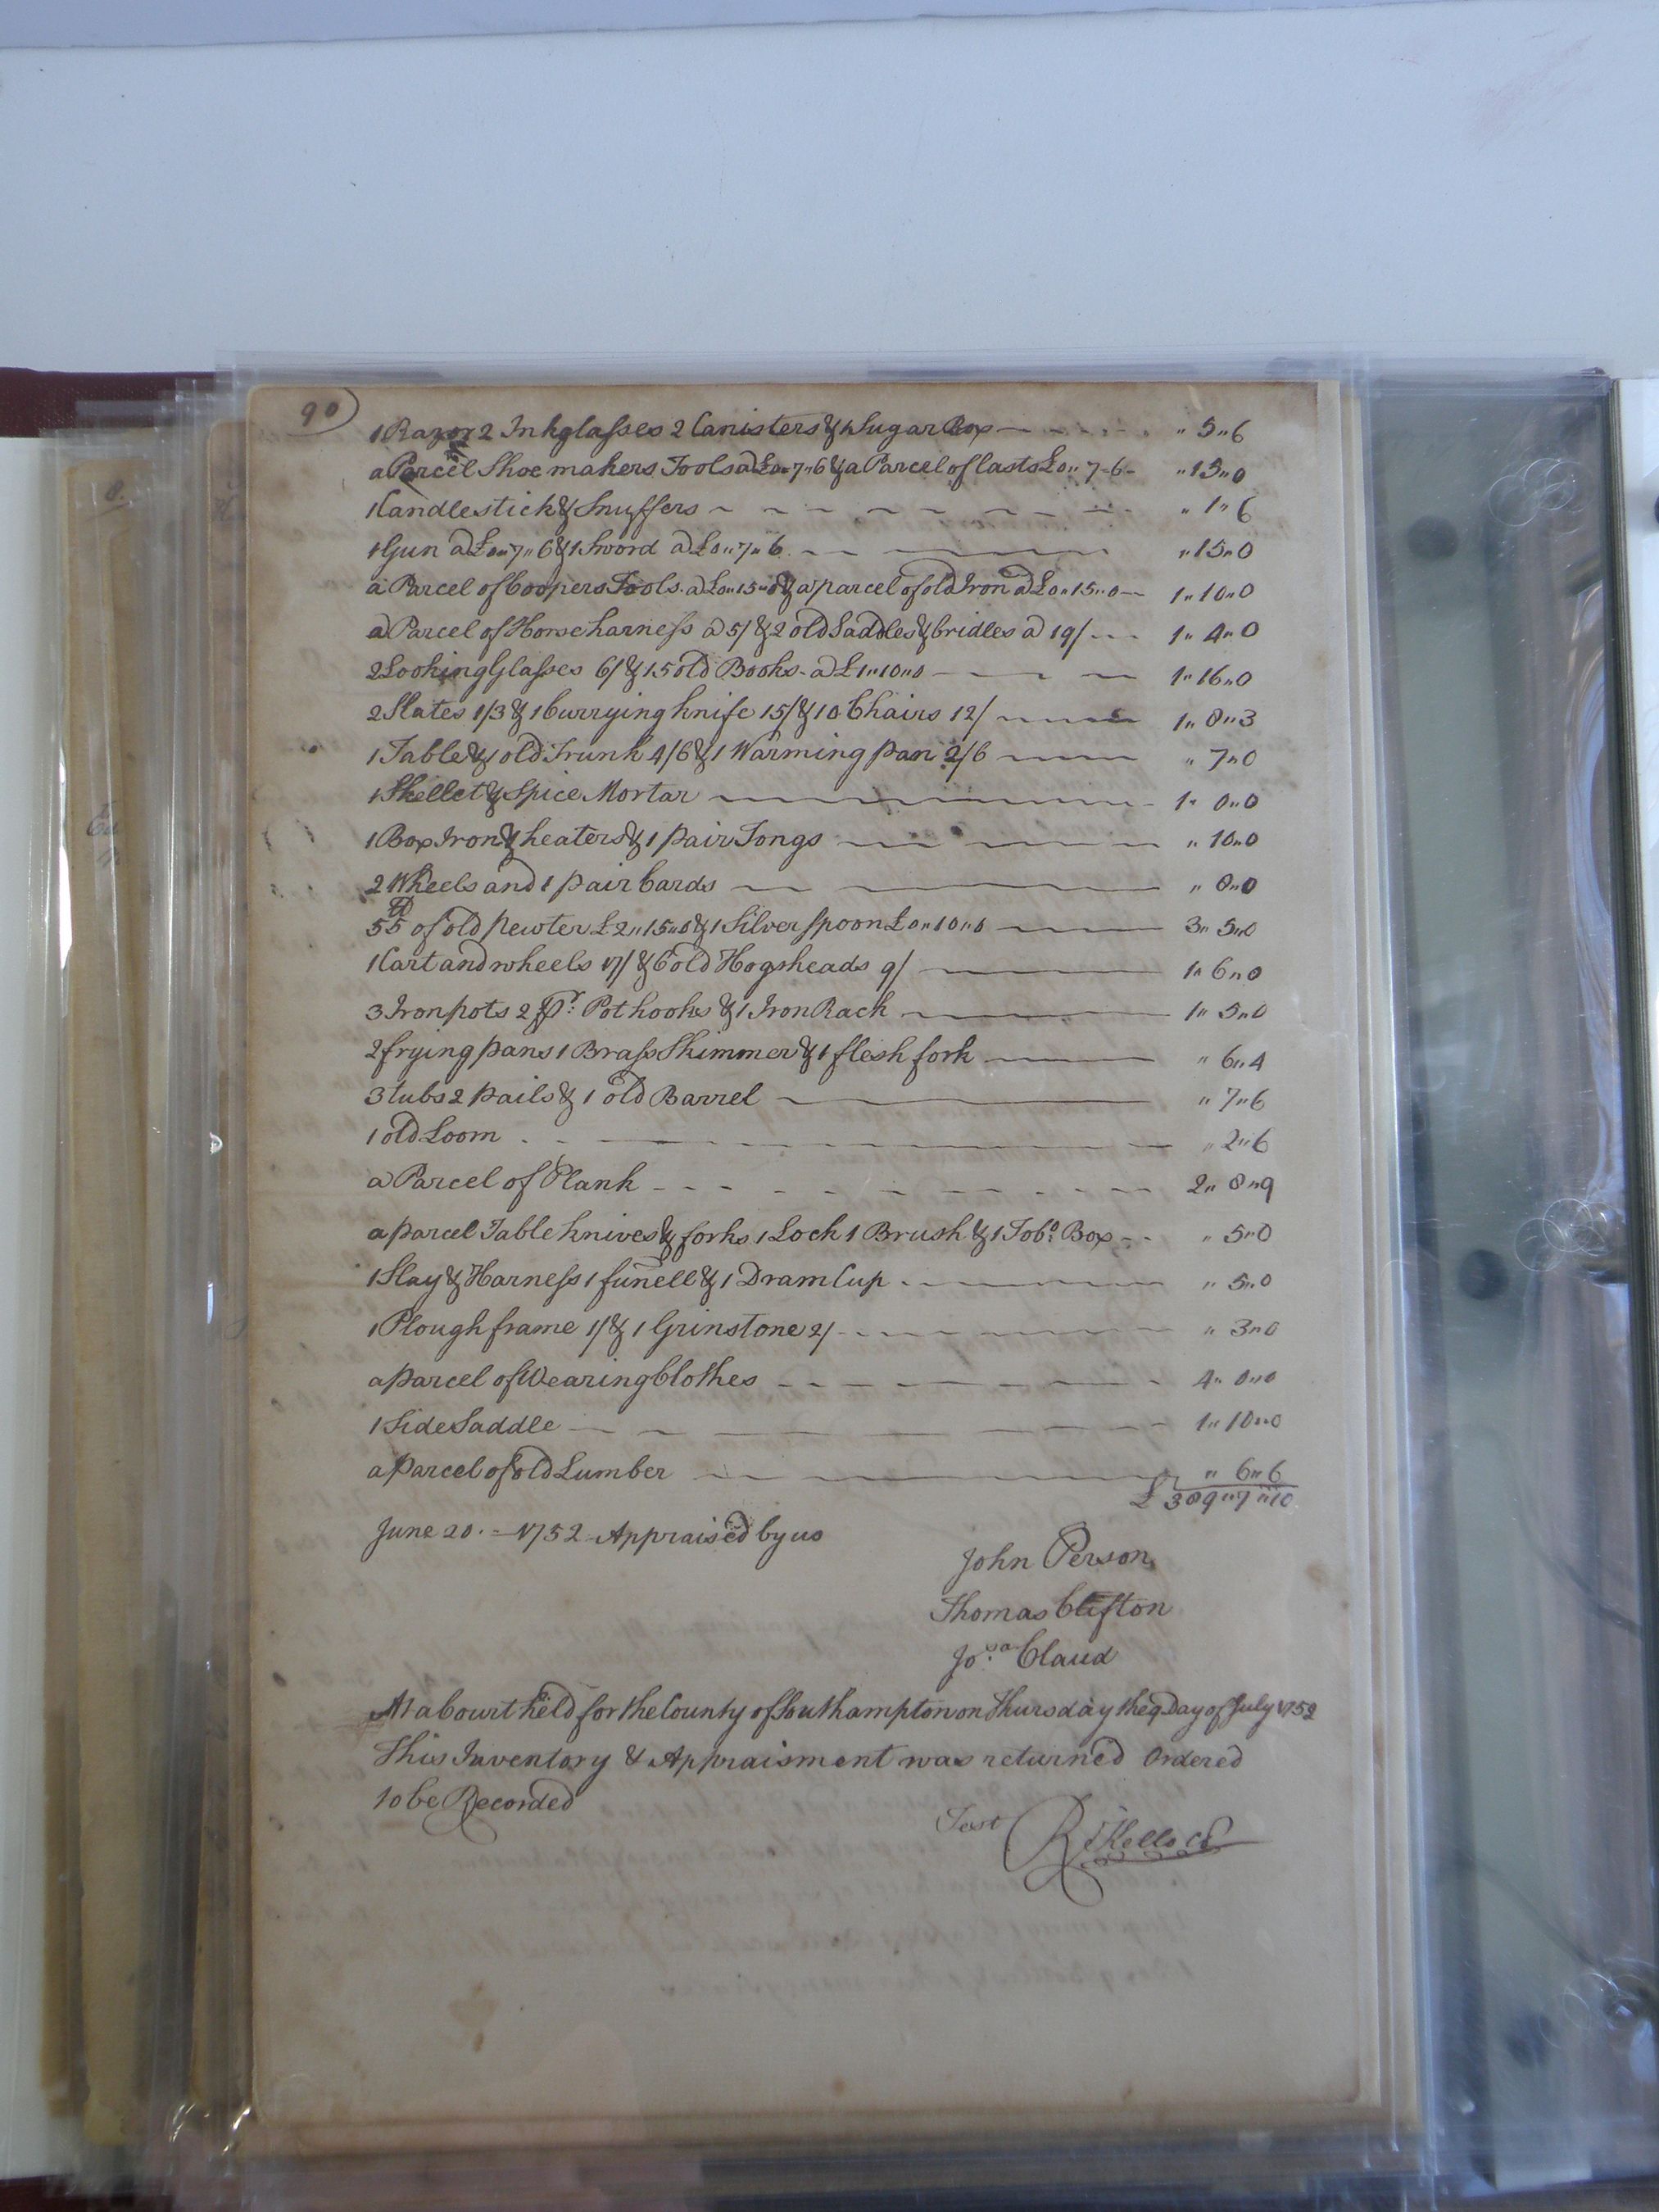 90
1 Razor 2 Inkglasses 2 Canisters & 1 Sugar Box " 5 " 6
a Parcel Shoemakers Tools a £0 " 7 " 6 & a Parcel of lasts £0 " 7 - 6 - " 15 " 0
1 Candlestick & Snuffers " 1 " 6
1 Gun a £0 " 7 " 6 & 1 Sword a £0 " 7 " 6 " 15 " 0
a Parcel of Coopers Tools a £0 " 15 " 0 & a parcel of old Iron a £0 " 15 " 0 1 " 10 " 0
a Parcel of Horse harness a 5/ & 2 old Saddles & bridles a 19/ 1 " 4 " 0
2 Looking Glasses 6/ & 15 old Books a £1 " 10 " 0 1 " 16 " 0
2 Slates 1/3 & 1 Currying knife 15/ & 10 Chairs 12/ 1 " 8 " 3
1 Table & 1 old Trunk 4/6 & 1 Warming pan 2/6 " 7 " 0
1 Skellet & Spice Mortar 1 " 0 " 0
1 Box Iron & heaters & 1 pair Tongs " 10 " 0
2 Wheels and 1 pair Cards " 8 " 0
55 of old pewter £2 " 15 " 0 & 1 Silver spoon £0 " 10 " 0 3 " 5 " 0
1 Cart and wheels 17/ & 6 old Hogsheads 9/ 1 " 6 " 0
3 Iron pots 2 pr. Pothooks & 1 Iron Rack 1 " 5 " 0
2 frying pans 1 Brass Skimmer & 1 flesh fork " 6 " 4
3 tubs 2 pails & 1 old Barrel " 7 " 6
1 old Loom " 2 " 6
a Parcel of Plank 2 " 8 " 9
a parcel Table knives & forks 1 Lock 1 Brush & 1 Tobo. Box " 5 " 0
1 Slay & Harness 1 funell & 1 Dram Cup " 5 " 0
1 Plough frame 1/ & 1 Grinstone 2/ " 3 " 0
a parcel of Wearing Clothes 4 " 0 " 0
1 Side Saddle 1 " 10 " 0
a Parcel of old Lumber " 6 " 6
£ 389 " 7 " 10
June 20. 1752 Appraised by us
John Person
Thomas Clifton
Josa. Claud
At a Court held for the County of Southampton on Thursday the 9 Day of July 1752
This Inventory & Appraisment was returned Ordered
to be Recorded
Test Rd Kello Cl